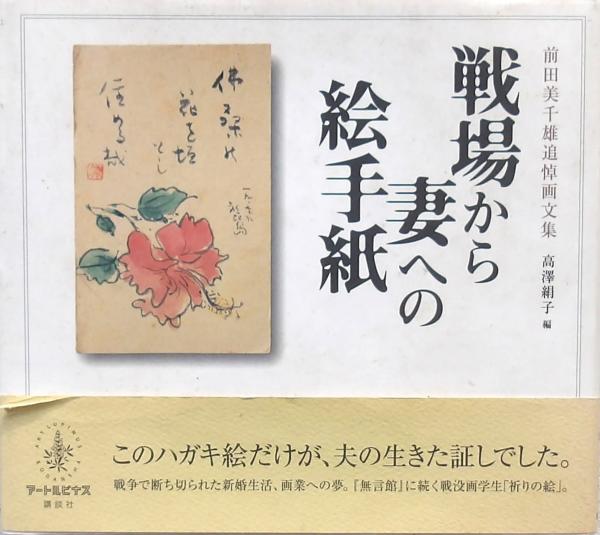 前田美千雄追悼画文集
高澤絹子 編
戦場から
妻への
絵手紙
佛桑の
花を垣
とし
住める哉
このハガキ絵だけが、夫の生きた証しでした。
戦争で断ち切られた新婚生活、画業への夢。『無言館』に続く戦没画学生「祈りの絵」。
ARTLUPINUS
KODANSHA
アートルピナス
講談社